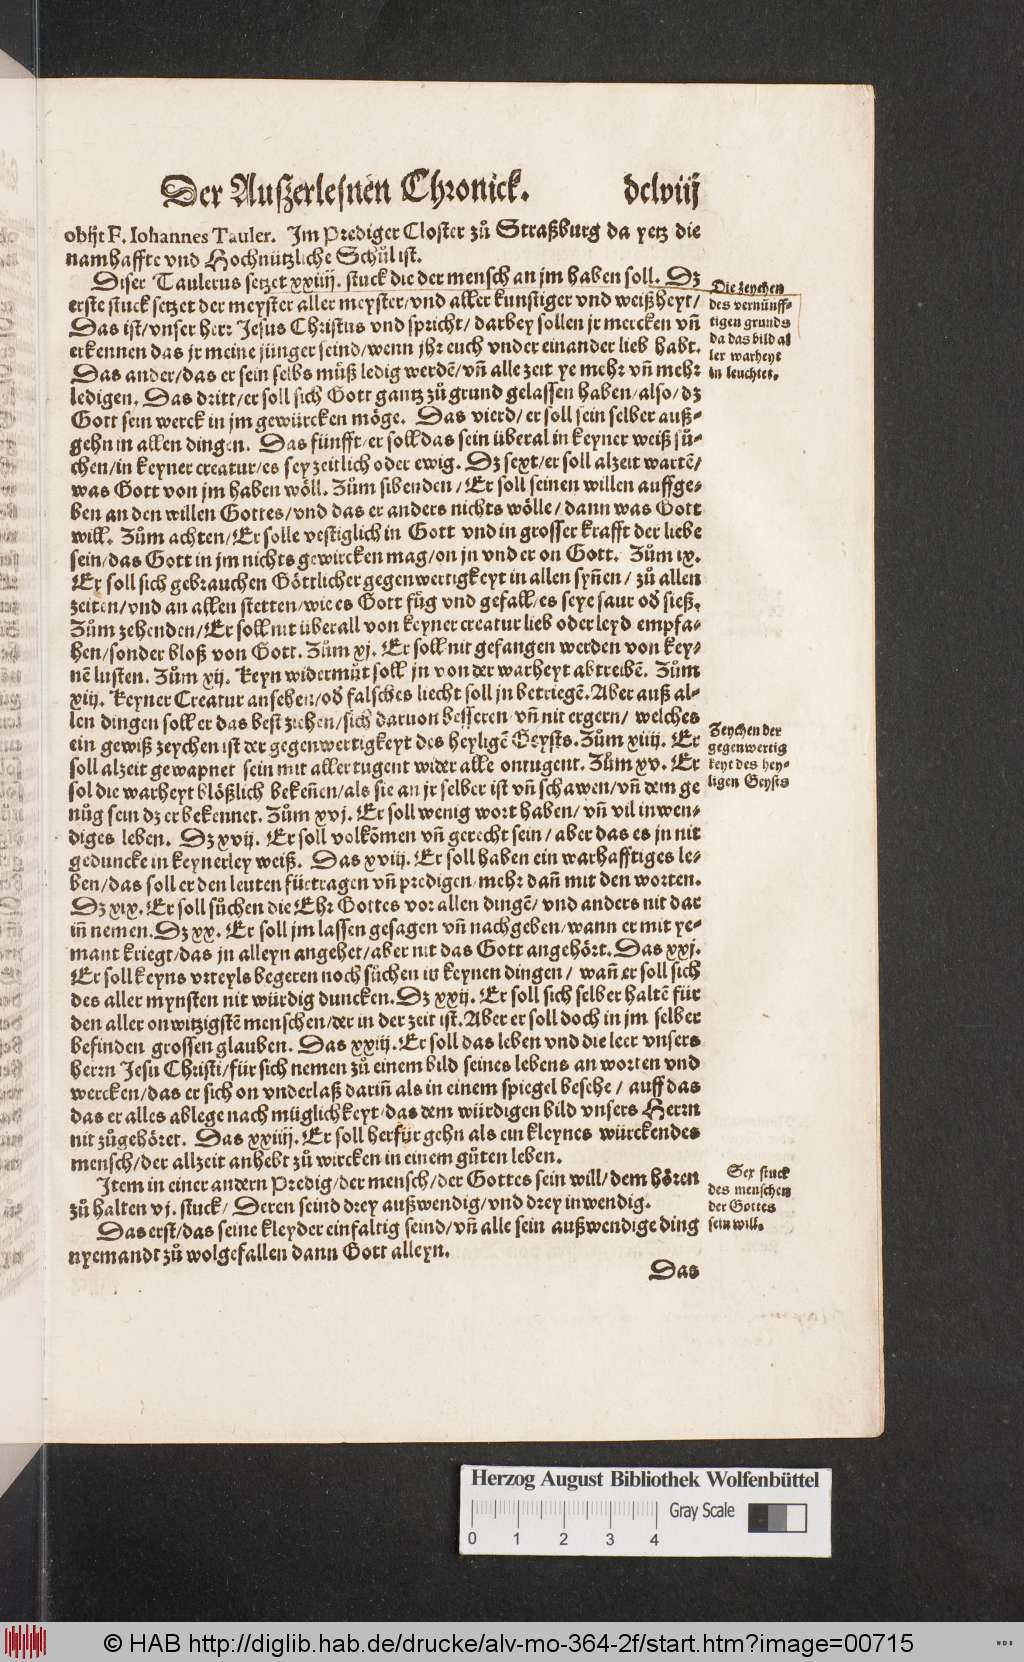 Der Außerlesnen Chronick. dclviij
obijt F. Iohannes Tauler. Jm Prediger Closter zů Straßburg da yetz die
namhaffte vnd Hochnützliche Schůl ist.
Diser Taulerus setzet xxiiij. stuck die der mensch an jm haben soll. Dz
erste stuck setzet der meyster aller meyster/vnd aller kunstiger vnd weißheyt/
Das ist/vnser herr Jesus Christus vnd spricht/darbey sollen jr mercken vñ
erkennen das jr meine jünger seind/wenn jhr euch vnder einander lieb habt.
Das ander/das er sein selbs můß ledig werdē/vñ alle zeit ye mehr vñ mehr
ledigen. Das dritt/er soll sich Gott gantz zů grund gelassen haben/also/dz
Gott sein werck in jm gewürcken möge. Das vierd/er soll sein selber auß-
gehn in allen dingen. Das fünfft/er soll das sein überal in keyner weiß sů-
chen/in keyner creatur/es sey zeitlich oder ewig. Dz sext/er soll alzeit wartē/
was Gott von jm haben wöll. Zům sibenden/Er soll seinen willen auffge-
ben an den willen Gottes/vnd das er anders nichts wölle/dann was Gott
will. Zům achten/Er solle vestiglich in Gott vnd in grosser krafft der liebe
sein/das Gott in jm nichts gewircken mag/on jn vnd er on Gott. Zům ix.
Er soll sich gebrauchen Göttlicher gegenwertigkeyt in allen syñen/zů allen
zeiten/vnd an allen stetten/wie es Gott fůg vnd gefall/es seye saur oď sieß.
Zům zehenden/Er soll nit überall von keyner creatur lieb oder leyd empfa-
hen/sonder bloß von Gott. Zům xj. Er soll nit gefangen werden von key-
nē lusten. Zům xij. Keyn widermůt soll jn von der warheyt abtreibē. Zům
xiij. Keyner Creatur ansehen/oď falsches liecht soll jn betriegē. Aber auß al-
len dingen soll er das best ziehen/sich daruon besseren vñ nit ergern/welches
ein gewiß zeychen ist der gegenwertigkeyt des heyligē Geysts. Zům xiiij. Er
soll alzeit gewapnet sein mit aller tugent wider alle ontugent. Zům xv. Er
sol die warheyt blößlich bekeñen/als sie an jr selber ist vñ schawen/vñ dem ge
nůg sein dz er bekennet. Zům xvj. Er soll wenig wort haben/vñ vil inwen-
diges leben. Dz xvij. Er soll volkōmen vñ gerecht sein/aber das es jn nit
geduncke in keynerley weiß. Das xviij. Er soll haben ein warhafftiges le-
ben/das soll er den leuten fürtragen vñ predigen/mehr dañ mit den worten.
Dz xix. Er soll sůchen die Ehr Gottes vor allen dingē/vnd anders nit dar
iñ nemen. Dz xx. Er soll jm lassen gesagen vñ nachgeben/wann er mit ye-
mant kriegt/das jn alleyn angehet/aber nit das Gott angehört. Das xxj.
Er soll keyns vrteyls begeren noch sůchen in keynen dingen/wañ er soll sich
des aller mynsten nit würdig duncken. Dz xxij. Er soll sich selber haltē für
den aller onwitzigstē menschen/der in der zeit ist. Aber er soll doch in jm selber
befinden grossen glauben. Das xxiij. Er soll das leben vnd die leer vnsers
herrn Jesu Christi/für sich nemen zů einem bild seines lebens an worten vnd
wercken/das er sich on vnderlaß dariñ als in einem spiegel besehe/auff das
das er alles ablege nach müglichkeyt/das dem würdigen bild vnsers Herrn
nit zůgehöret. Das xxiiij. Er soll herfür gehn als ein kleynes würckendes
mensch/der allzeit anhebt zů wircken in einem gůten leben.
Jtem in einer andern Predig/der mensch/der Gottes sein will/dem hören
zů halten vj. stuck/Deren seind drey außwendig/vnd drey inwendig.
Das erst/das seine kleyder einfaltig seind/vñ alle sein außwendige ding
nyemandt zů wolgefallen dann Gott alleyn.
Das
Die zeychen
des vernünff-
tigen grunds
da das bild al
ler warheyt
in leuchtet.
Zeychen der
gegenwertig
keyt des hey-
ligen Geysts
Sex stuck
des menschen
der Gottes
sein will.
Herzog August Bibliothek Wolfenbüttel
Gray Scale
0 1 2 3 4
© HAB http://diglib.hab.de/drucke/alv-mo-364-2f/start.htm?image=00715